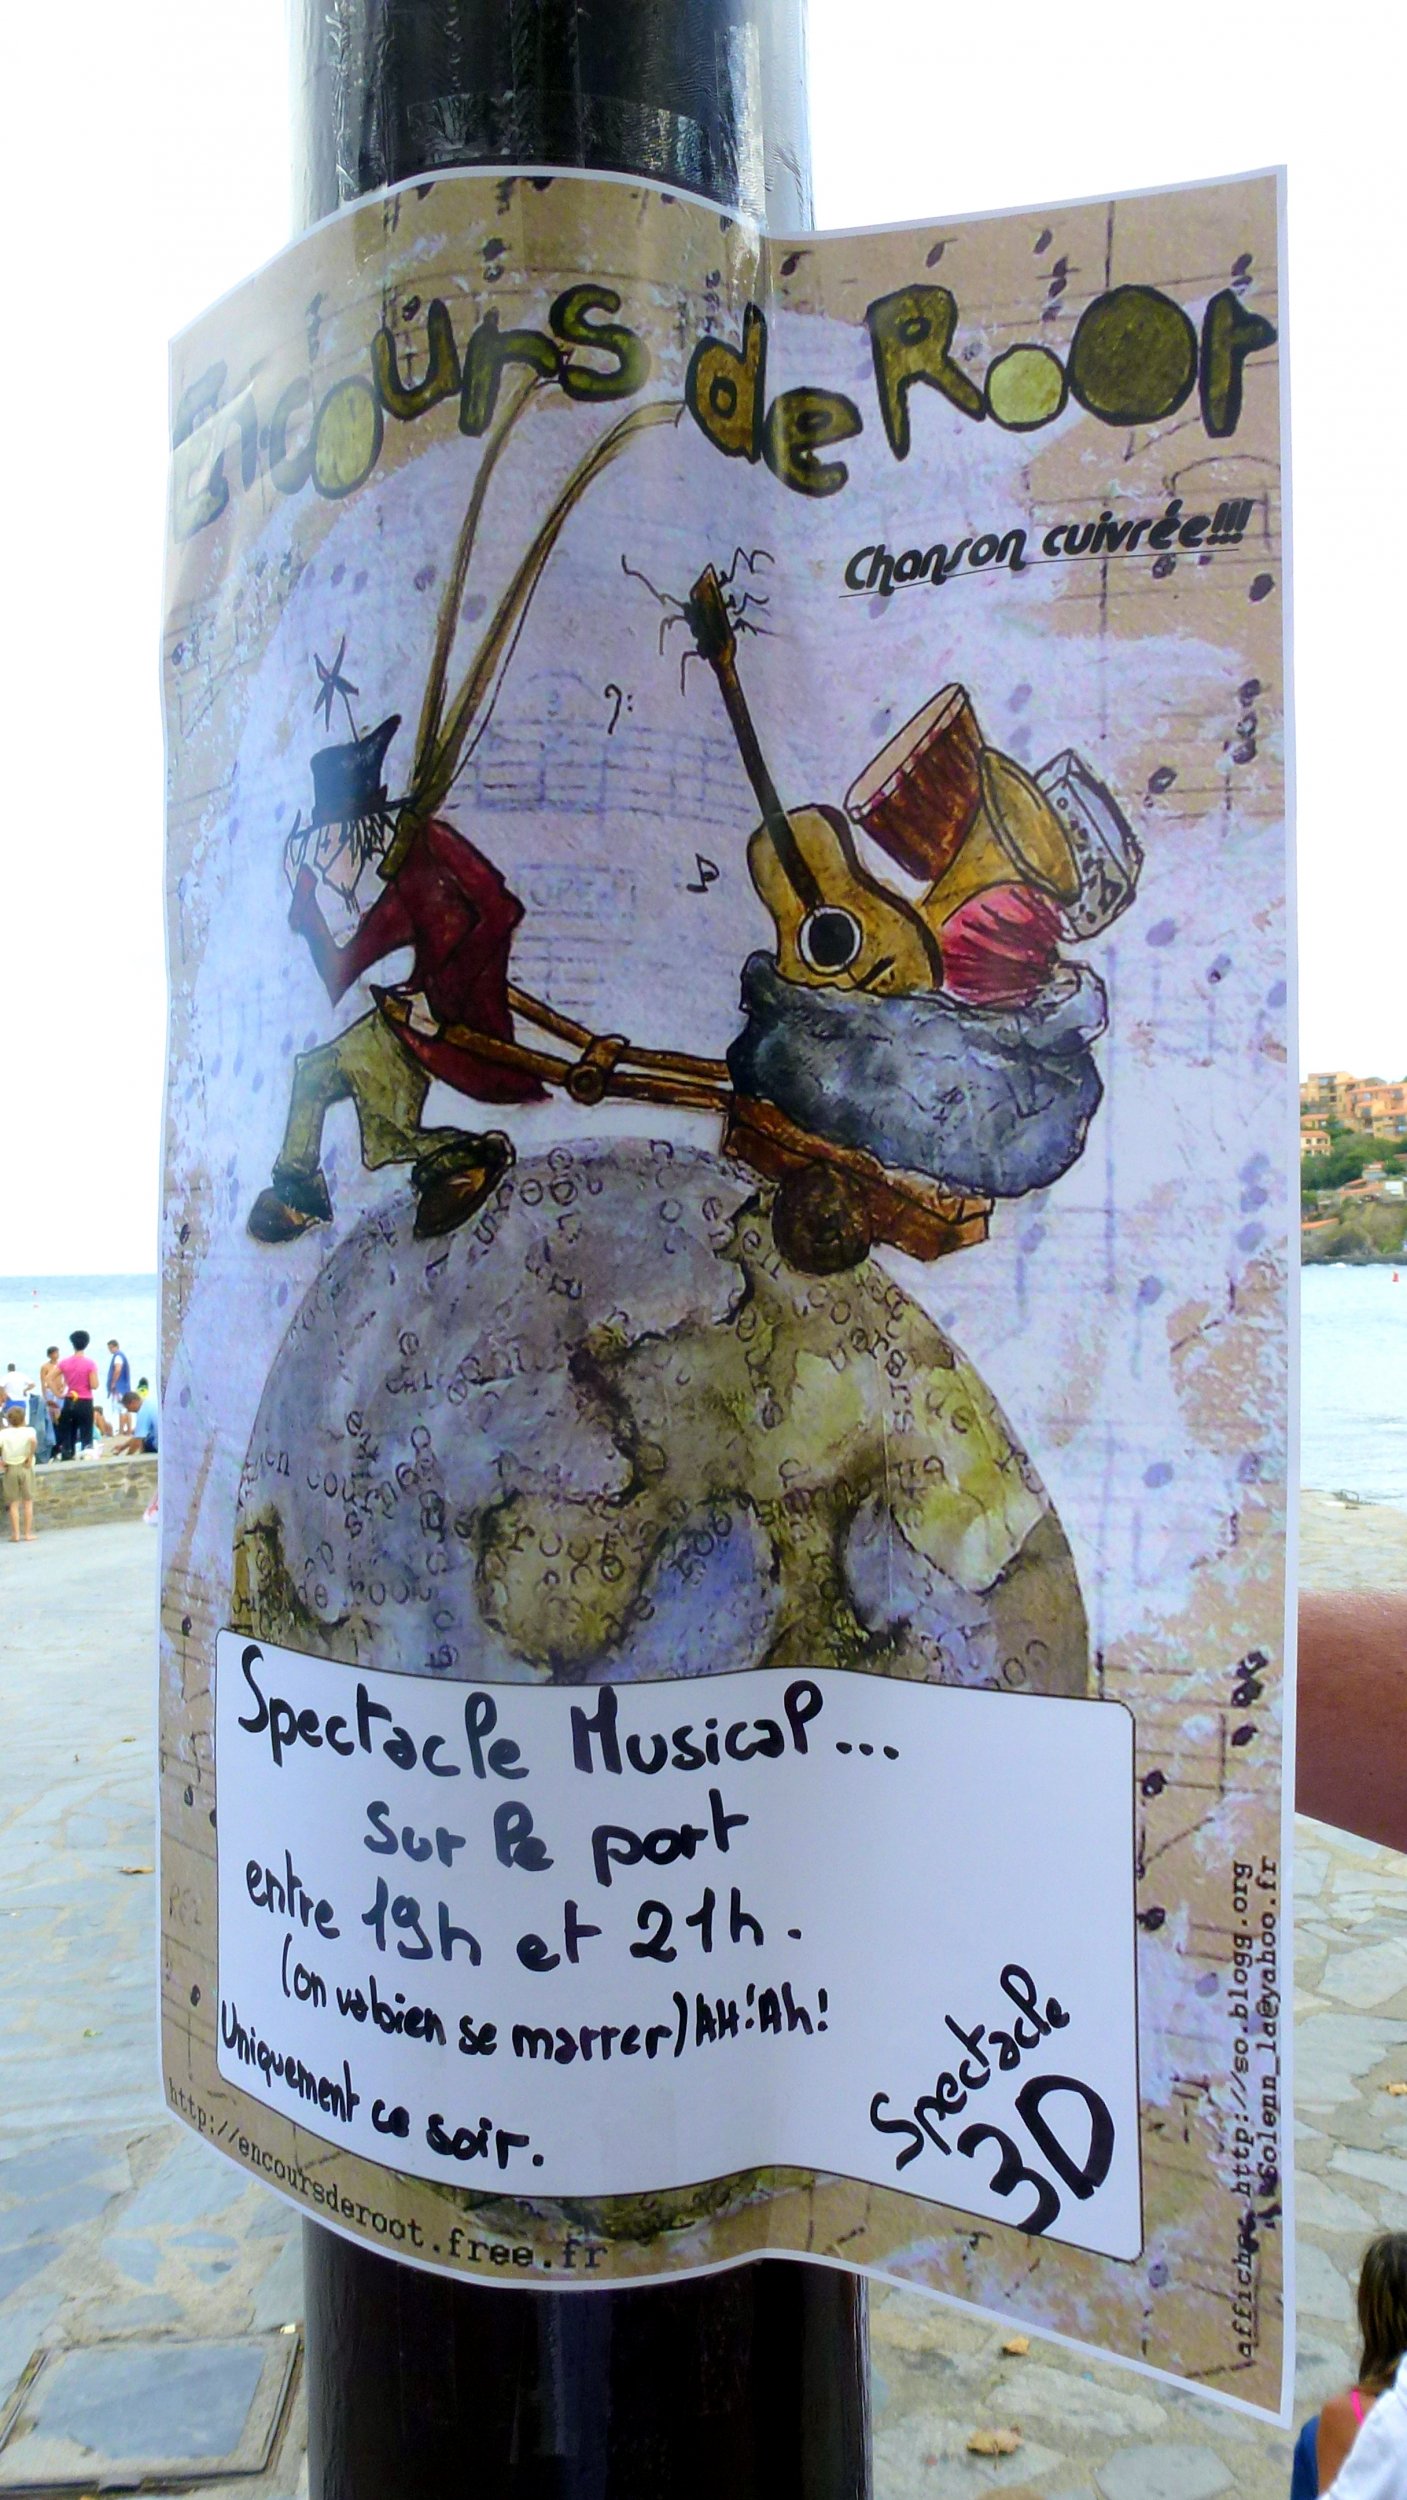 Encours de Root
Chanson cuivrée!!!
Spectacle Musical...
sur le port
entre 19h et 21h.
(on va bien se marrer) AH! Ah!
Uniquement ce soir.
Spectacle
3D
http://encoursderoot.free.fr
affiches http://so.blogg.org
Solenn_la@yahoo.fr